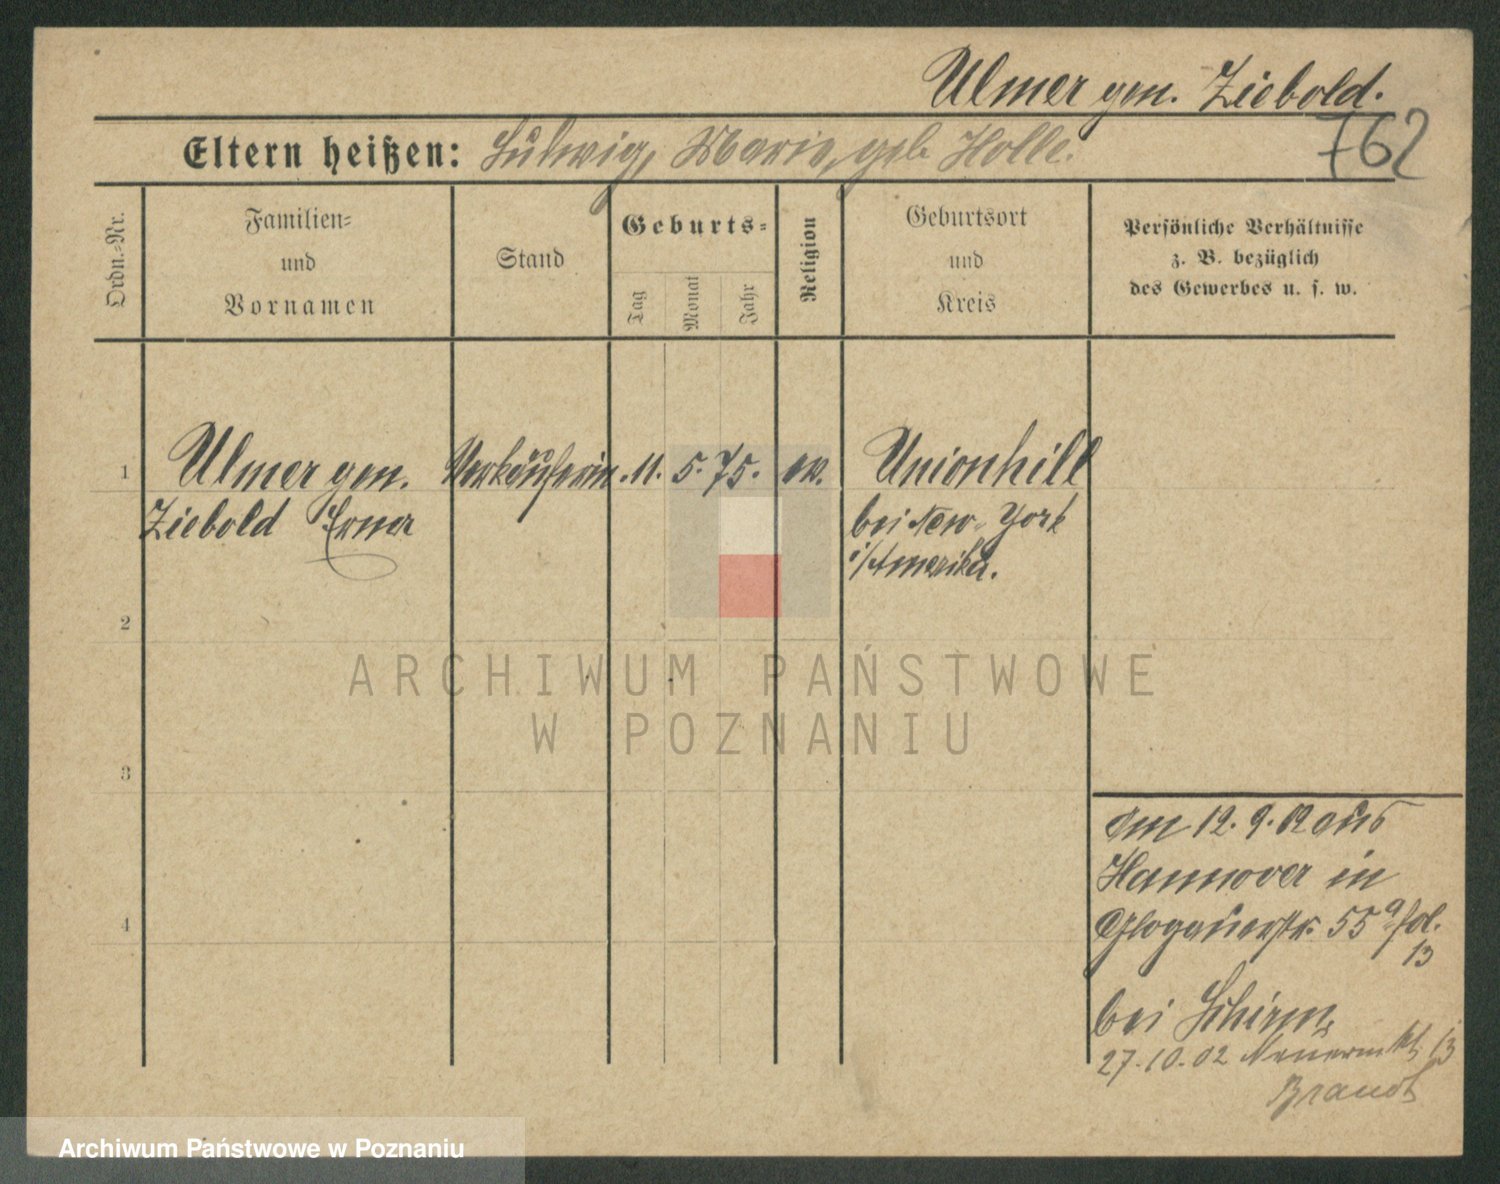 Ulmer gen. Ziebold.
762
Eltern heißen: Ludwig, Marie, geb. Holle.
Ordn.-Nr.
Familien-
und
Vornamen
Stand
Geburts-
Tag
Monat
Jahr
Religion
Geburtsort
und
Kreis
Persönliche Verhältnisse
z. B. bezüglich
des Gewerbes u. s. w.
1 Ulmer gen. Verkäuferin. 11. 5. 75. ev. Unionhill
Ziebold Erna bei New-York
i/Amerika.
2
ARCHIWUM PAŃSTWOWE
W POZNANIU
3
am 12. 9. 02 aus
Hannover in
4 Glogauerstr. 55a fol.
13
bei Schirm
27.10.02 13
Brandt
Archiwum Państwowe w Poznaniu